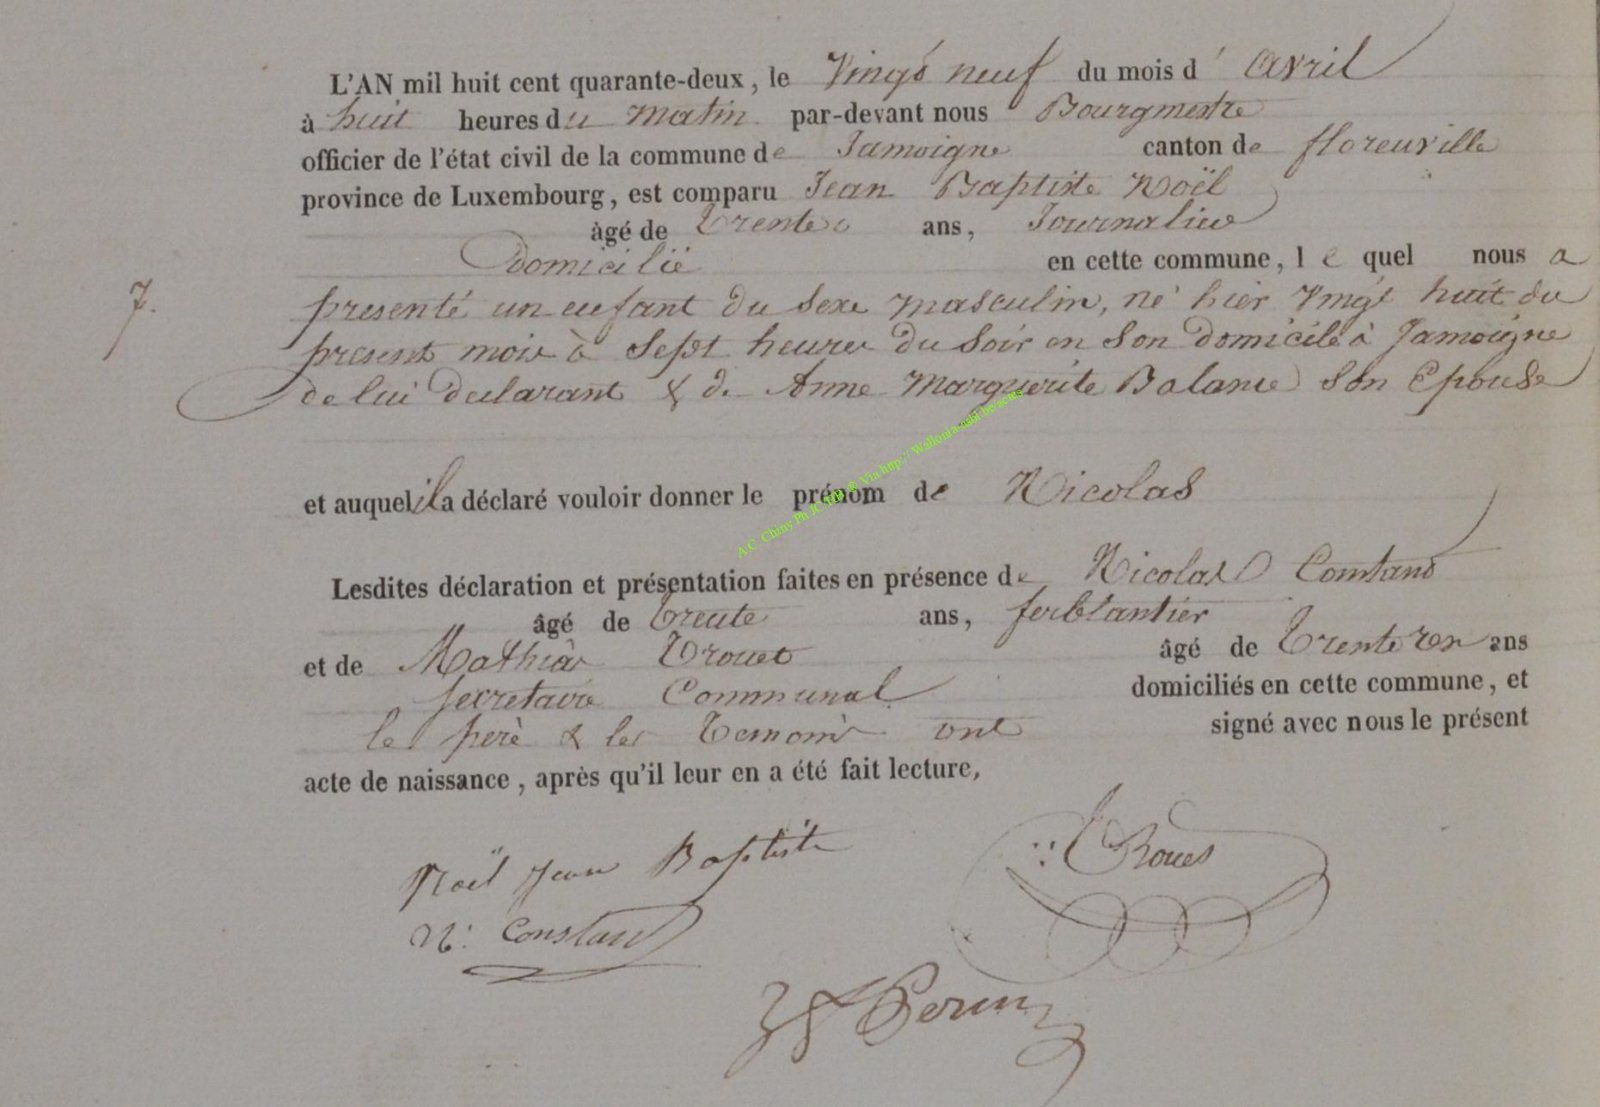 L'AN mil huit cent quarante-deux, le Vingt neuf du mois d' avril
à huit heures du matin par-devant nous Bourgmestre
officier de l'état civil de la commune de Jamoigne canton de florenville
province de Luxembourg, est comparu Jean Baptiste Noël
âgé de trente ans, Journalier
domicilié en cette commune, le quel nous a
7.
presenté un enfant du sexe masculin, né hier vingt huit du
present mois à sept heures du soir en son domicile à Jamoigne
de lui declarant & de Anne Marguerite son Epouse
et auquel il a déclaré vouloir donner le prénom de Nicolas
A.C. Chiny Ph JC Via http:// Wallonia-asbl.be/actes
Lesdites déclaration et présentation faites en présence de Nicolas Constand
âgé de trente ans, ferblantier
et de Mathias Trouet âgé de trente ans
secretaire Communal domiciliés en cette commune, et
le père & les temoins ont signé avec nous le présent
acte de naissance, après qu'il leur en a été fait lecture,
Noël Jean Baptiste
Trouet
N. Constan